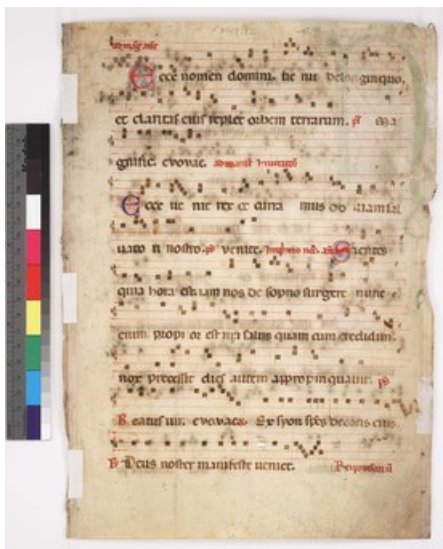 Ecce nomen domini. ue nit de longinquo.
et claritas eius replet orbem terrarum. ps Ma
gnific. evovae.
Ecce ue nit rex oc curra mus ob uiam sal
uato ri nostro. ps venite. Scientes
quia hora est iam nos de sopno surgere nunc
enim propi or est nrā salus quam cum credidim
nox precessit dies autem appropinquauit. ps
Beatus uir. evovae. Ex syon spēs decoris eius
Deus noster manifeste ueniet.